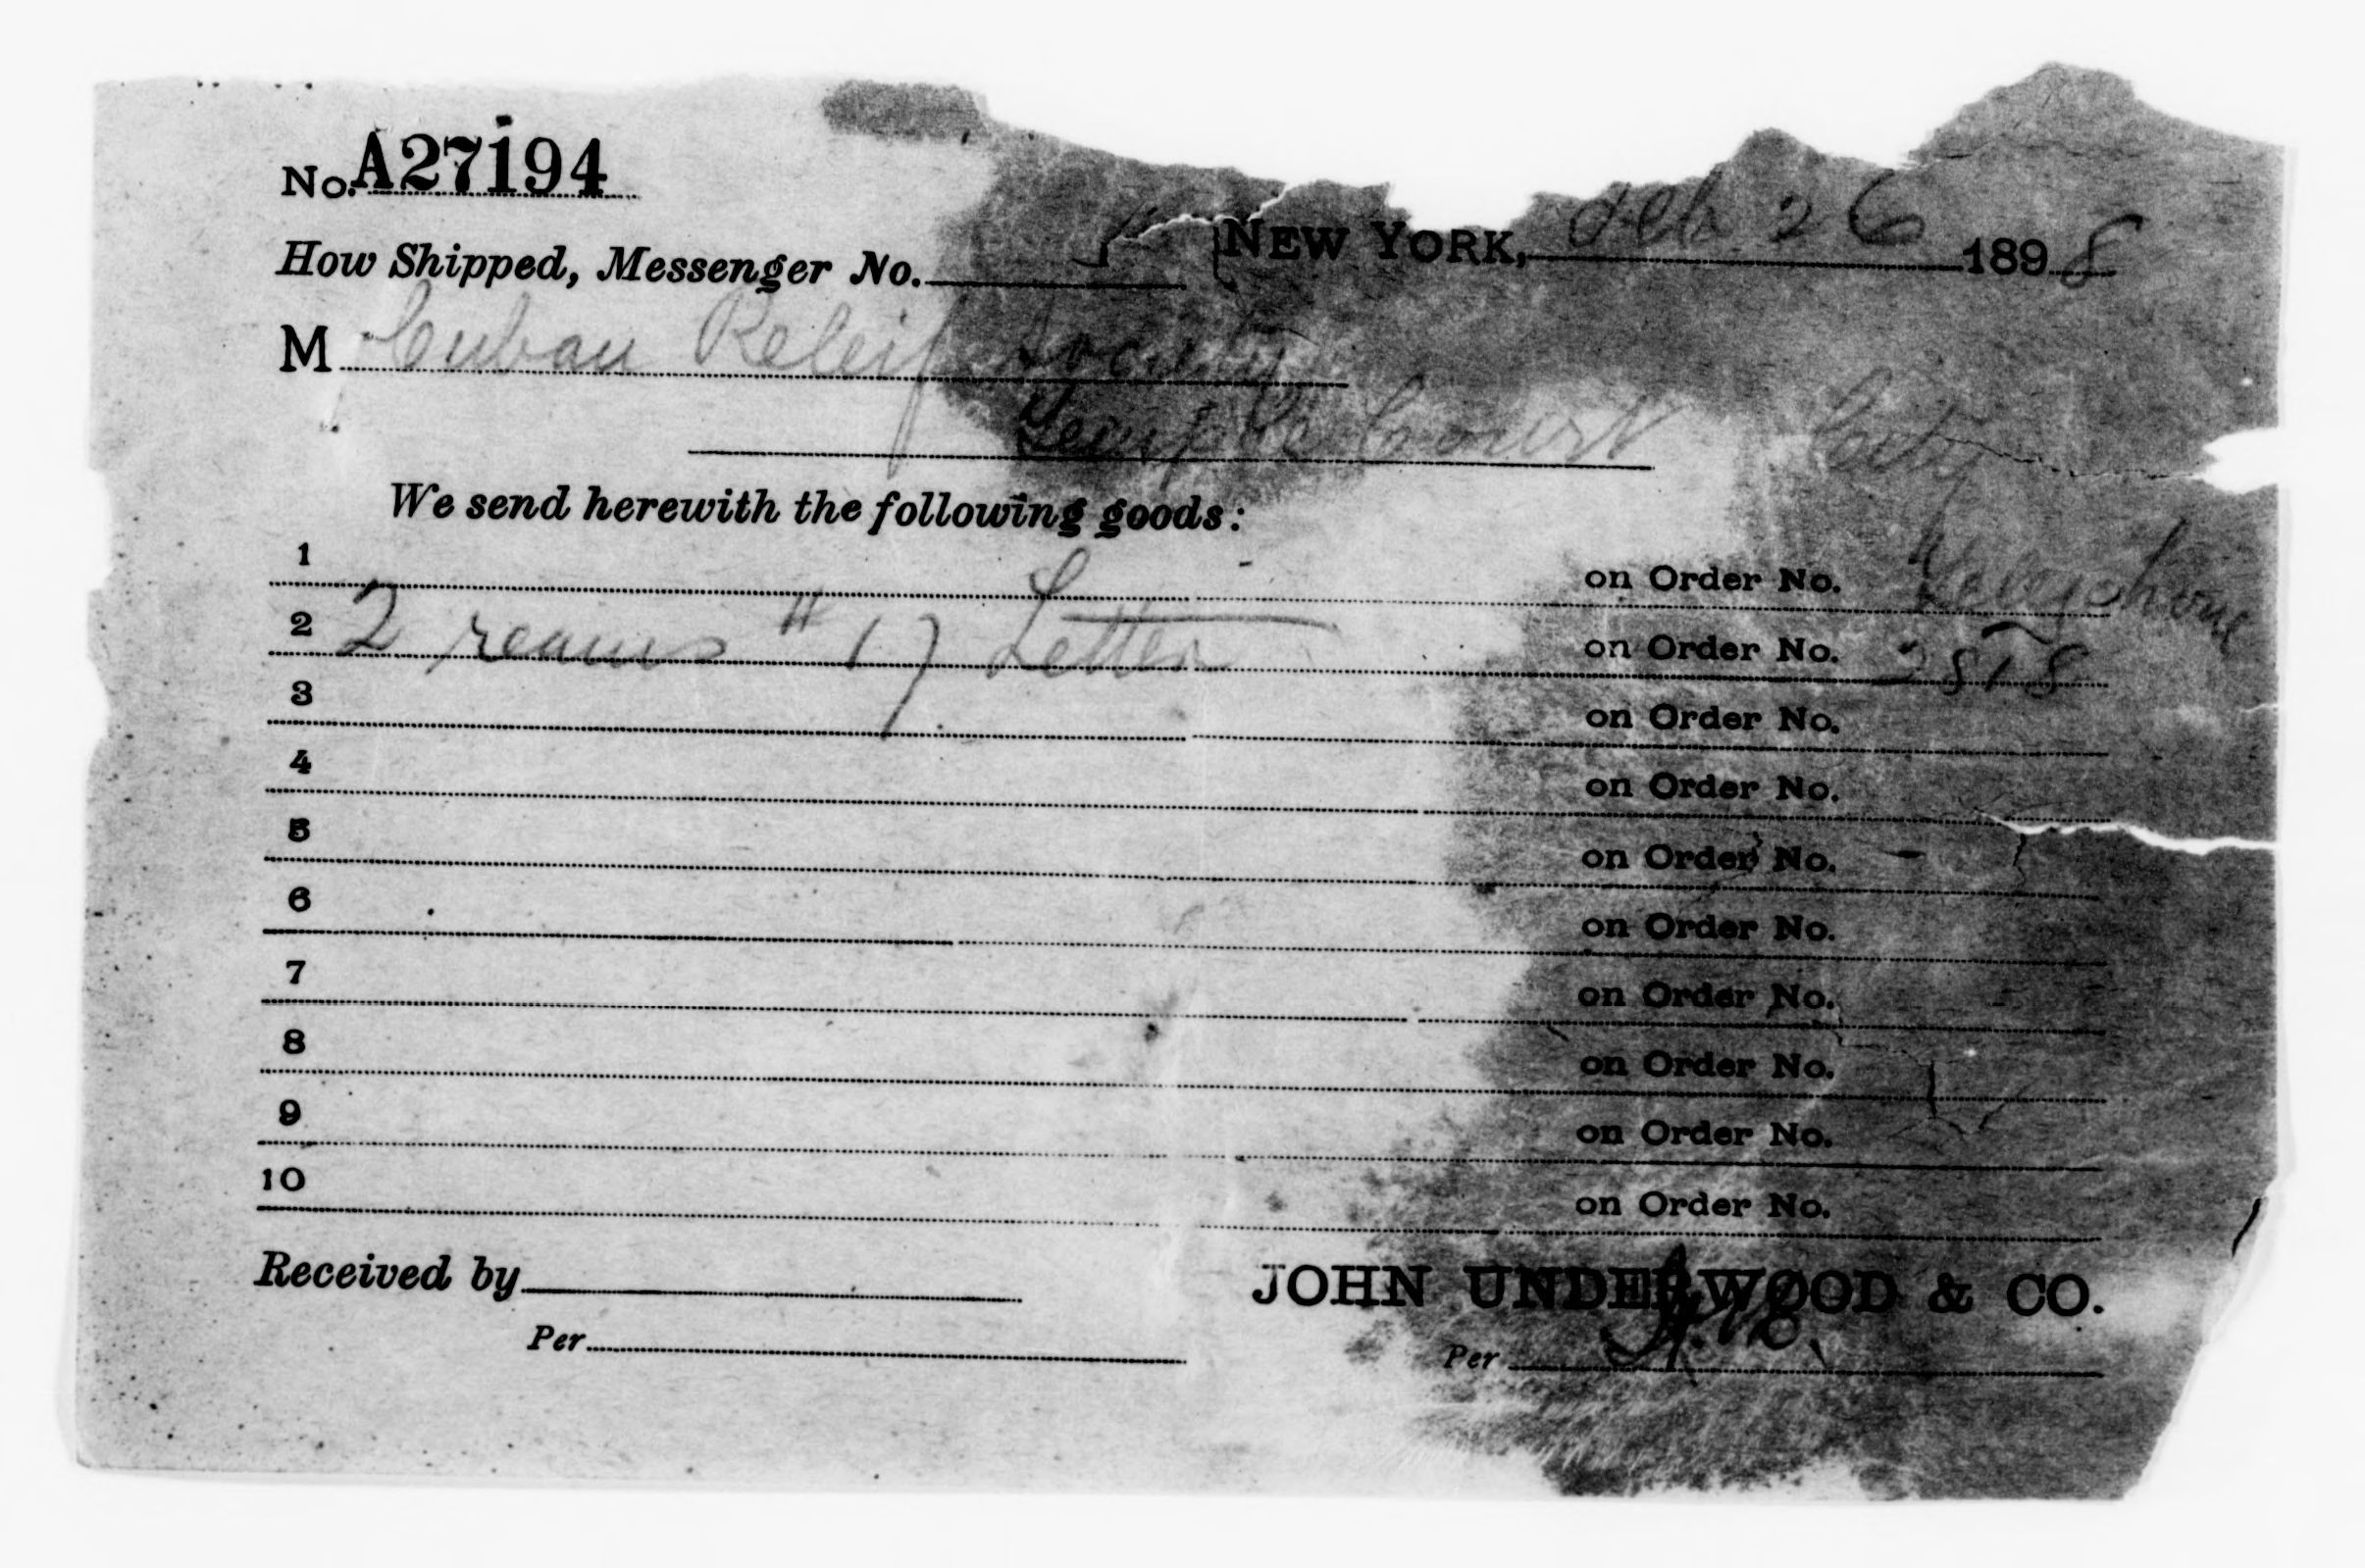 No. A27194
NEW YORK, Feb 26 1898
How Shipped, Messenger No.
M Cuban Releif Society
Temple Court City
We send herewith the following goods:
1 on Order No. Telephone
2 2 reams # 17 Letter on Order No. 2818
3 on Order No.
4 on Order No.
5 on Order No.
6 on Order No.
7 on Order No.
8 on Order No.
9 on Order No.
10 on Order No.
Received by JOHN UNDERWOOD & CO.
Per Per